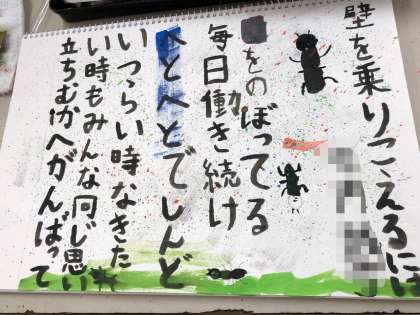 壁を乗りこえるには
をのぼってる
毎日働き続け
へとへとでしんど
いつらい時なきた
い時もみんな同じ思い
立ちむかへがんばって